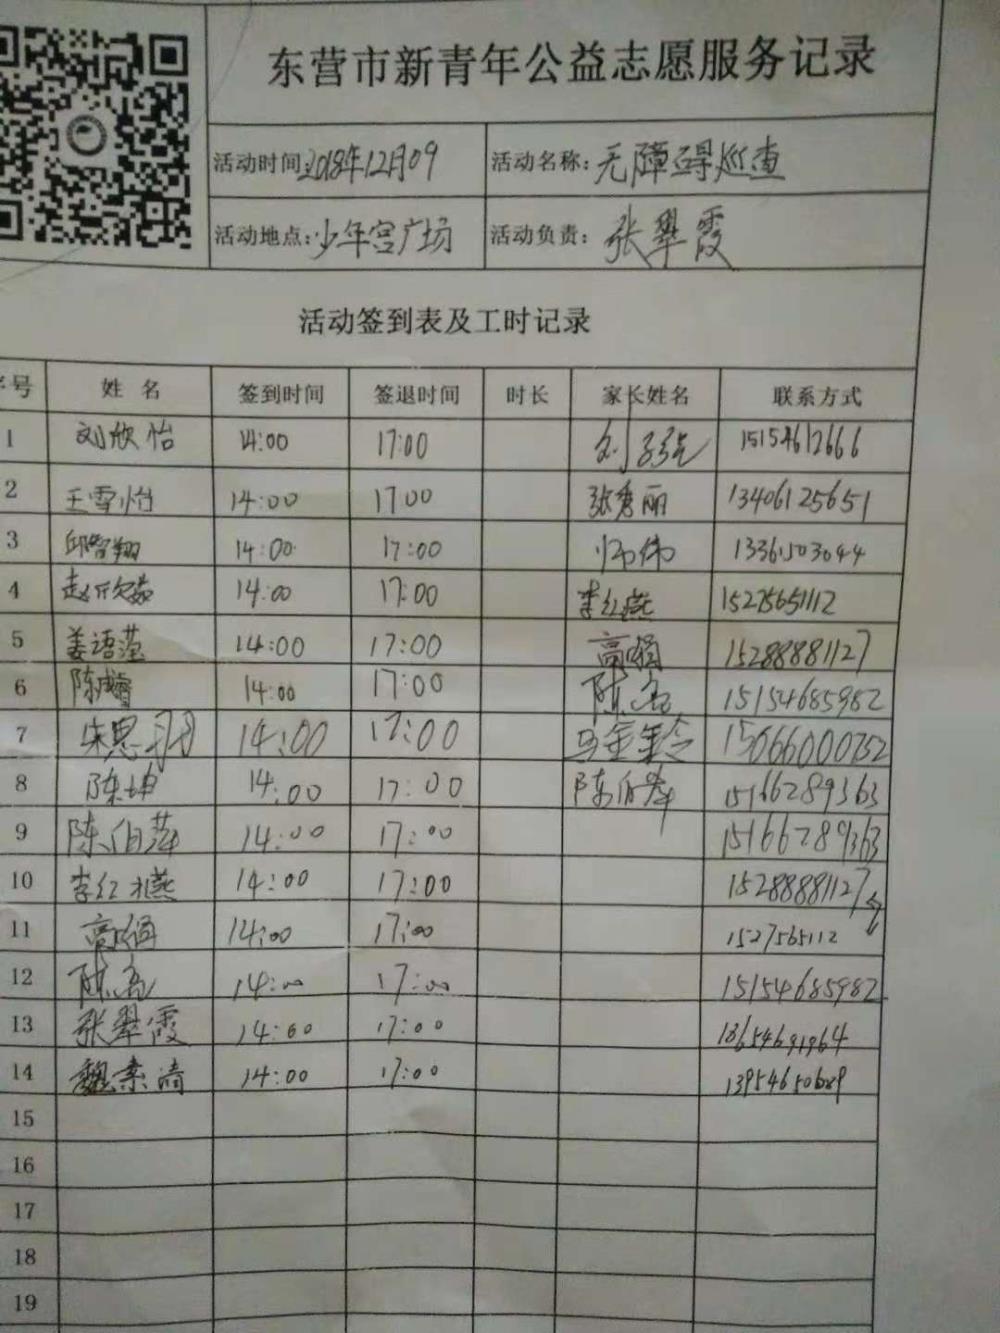 东营市新青年公益志愿服务记录
活动时间:2018年12月09 活动名称:无障碍巡查
活动地点:少年宫广场 活动负责:张翠霞
活动签到表及工时记录
序号 姓名 签到时间 签退时间 时长 家长姓名 联系方式
1 刘欣怡 14:00 17:00 刘 15154612666
2 王雪怡 14:00 1700 张秀丽 13406125651
3 邱智翔 14:00 17:00 伟 13361503044
4 赵欣茹 14:00 17:00 李红燕 15275651112
5 姜语滢 14:00 17:00 高娟 15288881127
6 陈睿 14:00 17:00 陈亮 15154685982
7 朱思羽 14:00 17:00 马金金 15066000752
8 陈坤 14:00 17:00 陈伯萍 15166289363
9 陈伯萍 14:00 17:00 15166289363
10 李红燕 14:00 17:00 15288881127
11 高娟 14:00 17:00 1527565112
12 陈亮 14:00 17:00 15154685982
13 张翠霞 14:00 17:00 18654691964
14 魏素清 14:00 17:00 13954650689
15
16
17
18
19